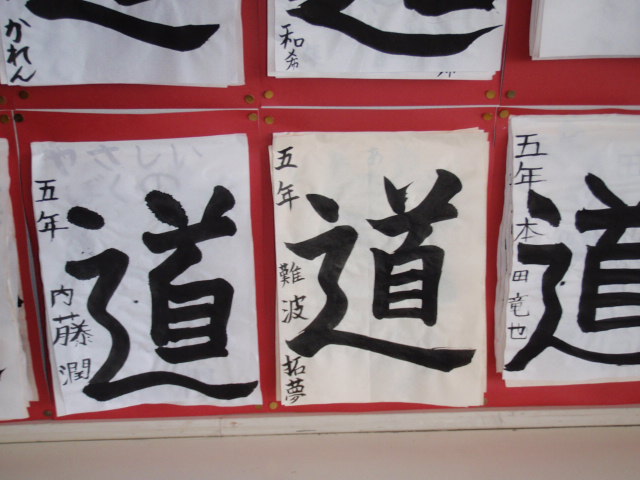 かれん
和希
道
五年
内藤潤
道
五年
難波拓夢
道
五年
本田竜也